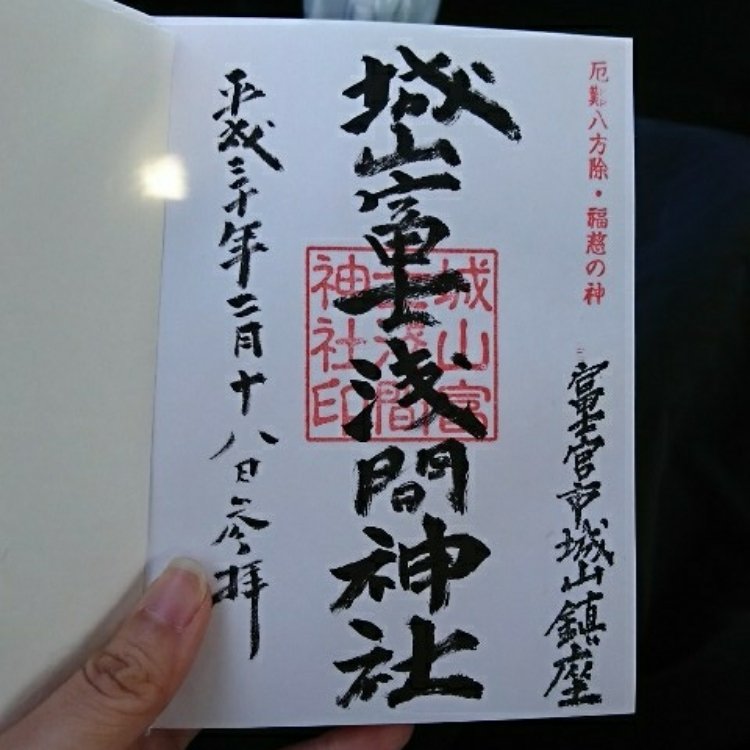 厄難八方除・福慈の神
富士宮市城山鎮座
城山富士浅間神社
城山富士浅間神社印
平成三十年二月十八日参拝